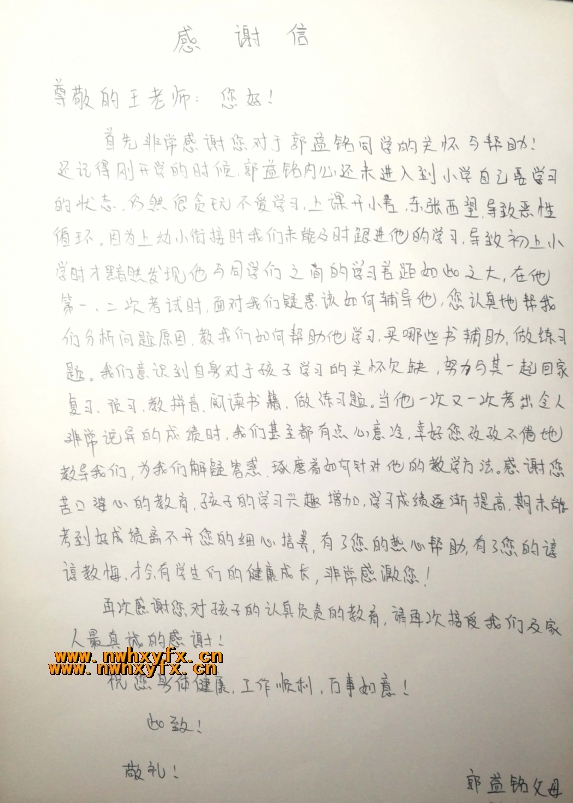 感谢信
尊敬的王老师：您好！
首先非常感谢您对于郭益铭同学的关怀与帮助！
还记得刚开学的时候，郭益铭内心还未进入到小学自己要学习
的状态，仍然很贪玩不爱学习，上课开小差，东张西望，导致恶性
循环。因为上幼小衔接时我们未能及时跟进他的学习，导致初上小
学时才黯然发现他与同学们之间的学习差距如此之大，在他
第一、二次考试时，面对我们疑惑该如何辅导他，您认真地帮我
们分析问题原因，教我们如何帮助他学习，买哪些书辅助，做练习
题。我们意识到自身对于孩子学习的关怀欠缺，努力与其一起回家
复习、预习、教拼音、阅读书籍、做练习题。当他一次又一次考出令人
非常诧异的成绩时，我们甚至都有点心意冷，幸好您孜孜不倦地
教导我们，为我们解疑答惑，琢磨着如何针对他的教学方法。感谢您
苦口婆心的教育，孩子的学习兴趣增加，学习成绩逐渐提高，期末能
考到好成绩离不开您的细心培养，有了您的热心帮助，有了您的谆
谆教悔，才会有学生们的健康成长，非常感激您！
再次感谢您对孩子的认真负责的教育，请再次接受我们及家
人最真挚的感谢！
www.nwhxyfx.cn
www.nwhxyfx.cn
祝您身体健康，工作顺利，万事如意！
此致！
敬礼！
郭益铭父母